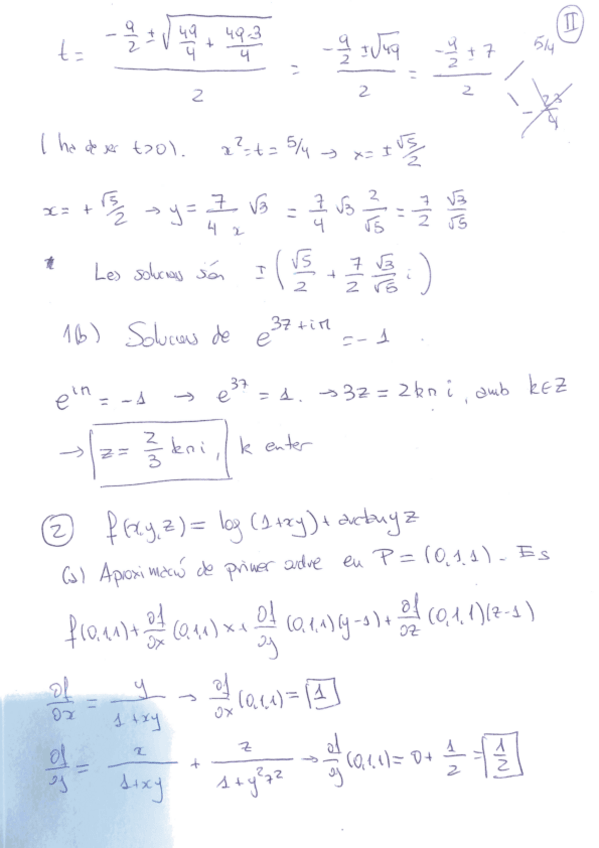 II
t = (-9/2 ± √(49/4 + 49·3/4)) / 2 = (-9/2 ± √49) / 2 = (-9/2 ± 7) / 2 5/4
- 23/4
(ha de ser t>0). x² = t = 5/4 → x = ± √5/2
x = + √5/2 → y = 7/(4x) √3 = 7/4 √3 2/√5 = 7/2 √3/√5
Les solucions són ± (√5/2 + 7/2 √3/√5 i)
1(b) Solucions de e^(3z+iπ) = -1.
e^(iπ) = -1 → e^(3z) = 1. → 3z = 2kπi, amb k∈Z
→ z = 2/3 kπi, k enter
② f(x,y,z) = log(1+xy) + arctan yz
(a) Aproximació de primer ordre en P = (0,1,1). És
f(0,1,1) + ∂f/∂x (0,1,1) x + ∂f/∂y (0,1,1)(y-1) + ∂f/∂z (0,1,1)(z-1)
∂f/∂x = y/(1+xy) → ∂f/∂x (0,1,1) = 1
∂f/∂y = x/(1+xy) + z/(1+y²z²) → ∂f/∂y (0,1,1) = 0 + 1/2 = 1/2